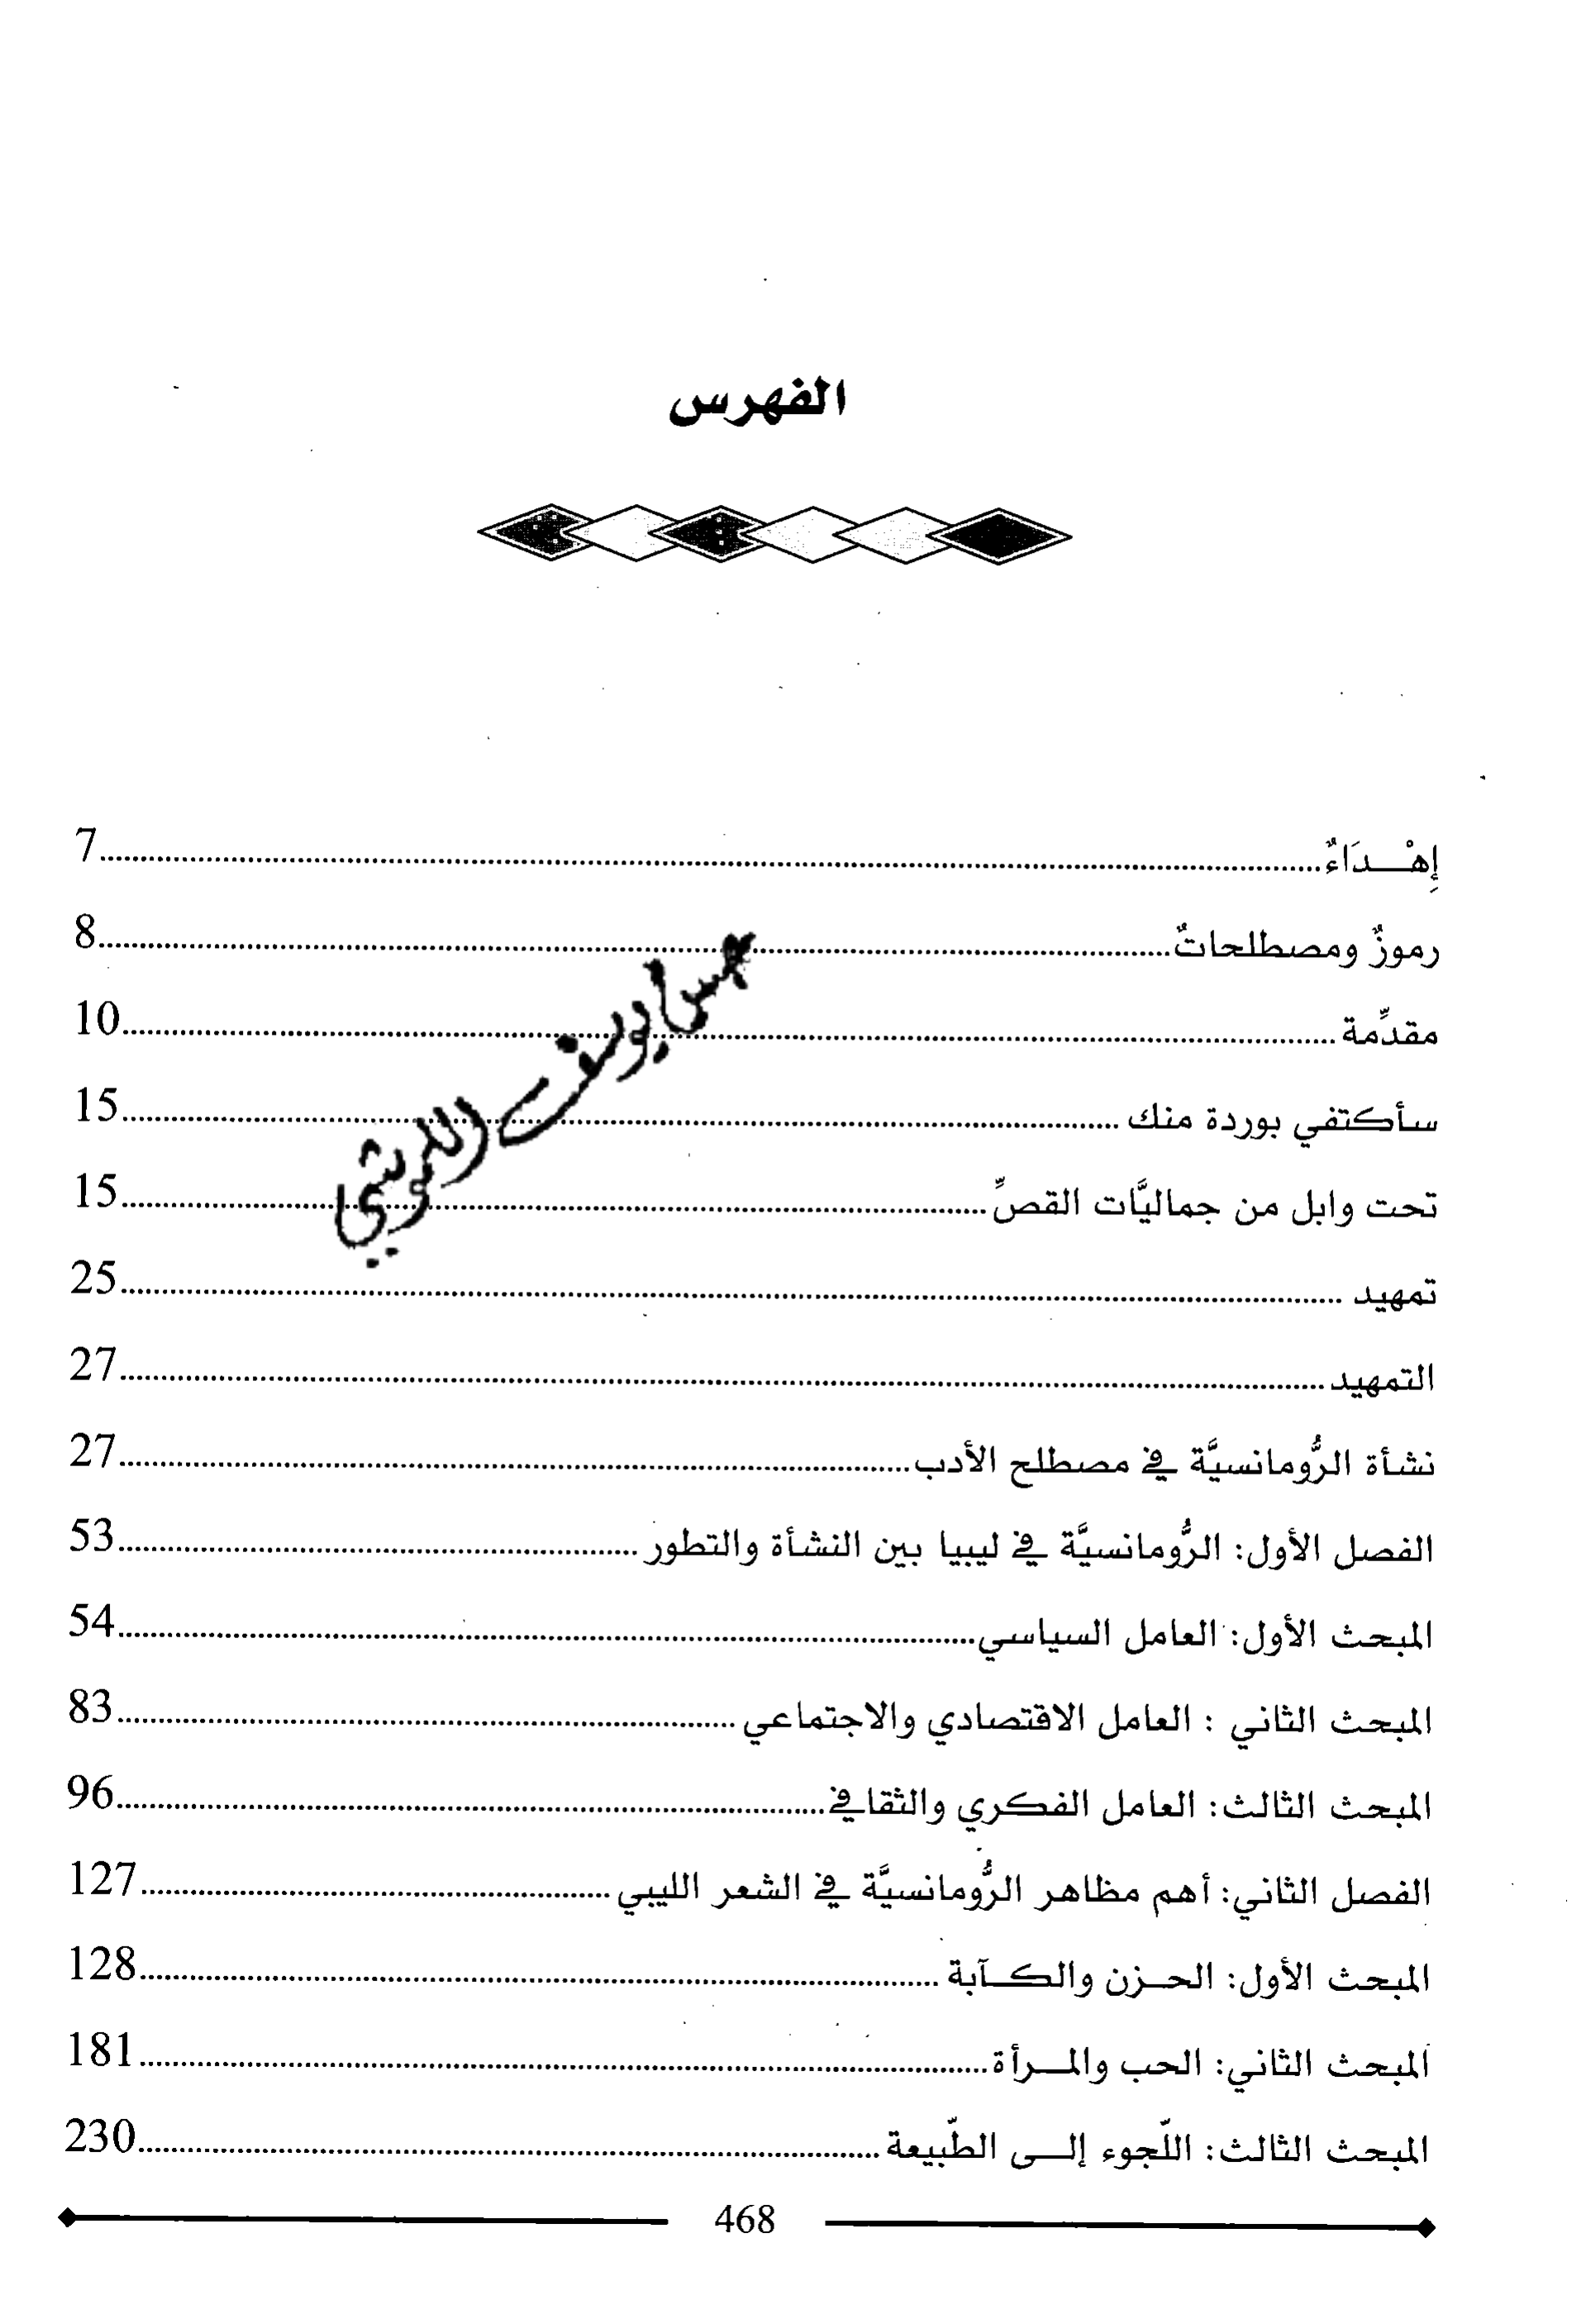 الفهرس
إِهْـــدَاءٌ..........7
رموزٌ ومصطلحاتٌ..........8
مقدِّمة..........10
سأكتفي بوردة منك..........15
تحت وابل من جماليَّات القصِّ..........15
تمهيد..........25
التمهيد..........27
نشأة الرُّومانسيَّة في مصطلح الأدب..........27
الفصل الأول: الرُّومانسيَّة في ليبيا بين النشأة والتطور..........53
المبحث الأول: العامل السياسي..........54
المبحث الثاني : العامل الاقتصادي والاجتماعي..........83
المبحث الثالث: العامل الفكري والثقافي..........96
الفصل الثاني: أهم مظاهر الرُّومانسيَّة في الشعر الليبي..........127
المبحث الأول: الحـزن والكـآبة..........128
المبحث الثاني: الحب والمـرأة..........181
المبحث الثالث: اللّجوء إلـى الطّبيعة..........230
468